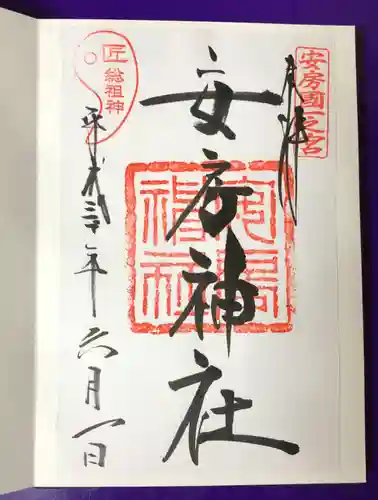 安房國一之宮
安房神社
安房
神社
匠
總祖神
平成三十年六月一日